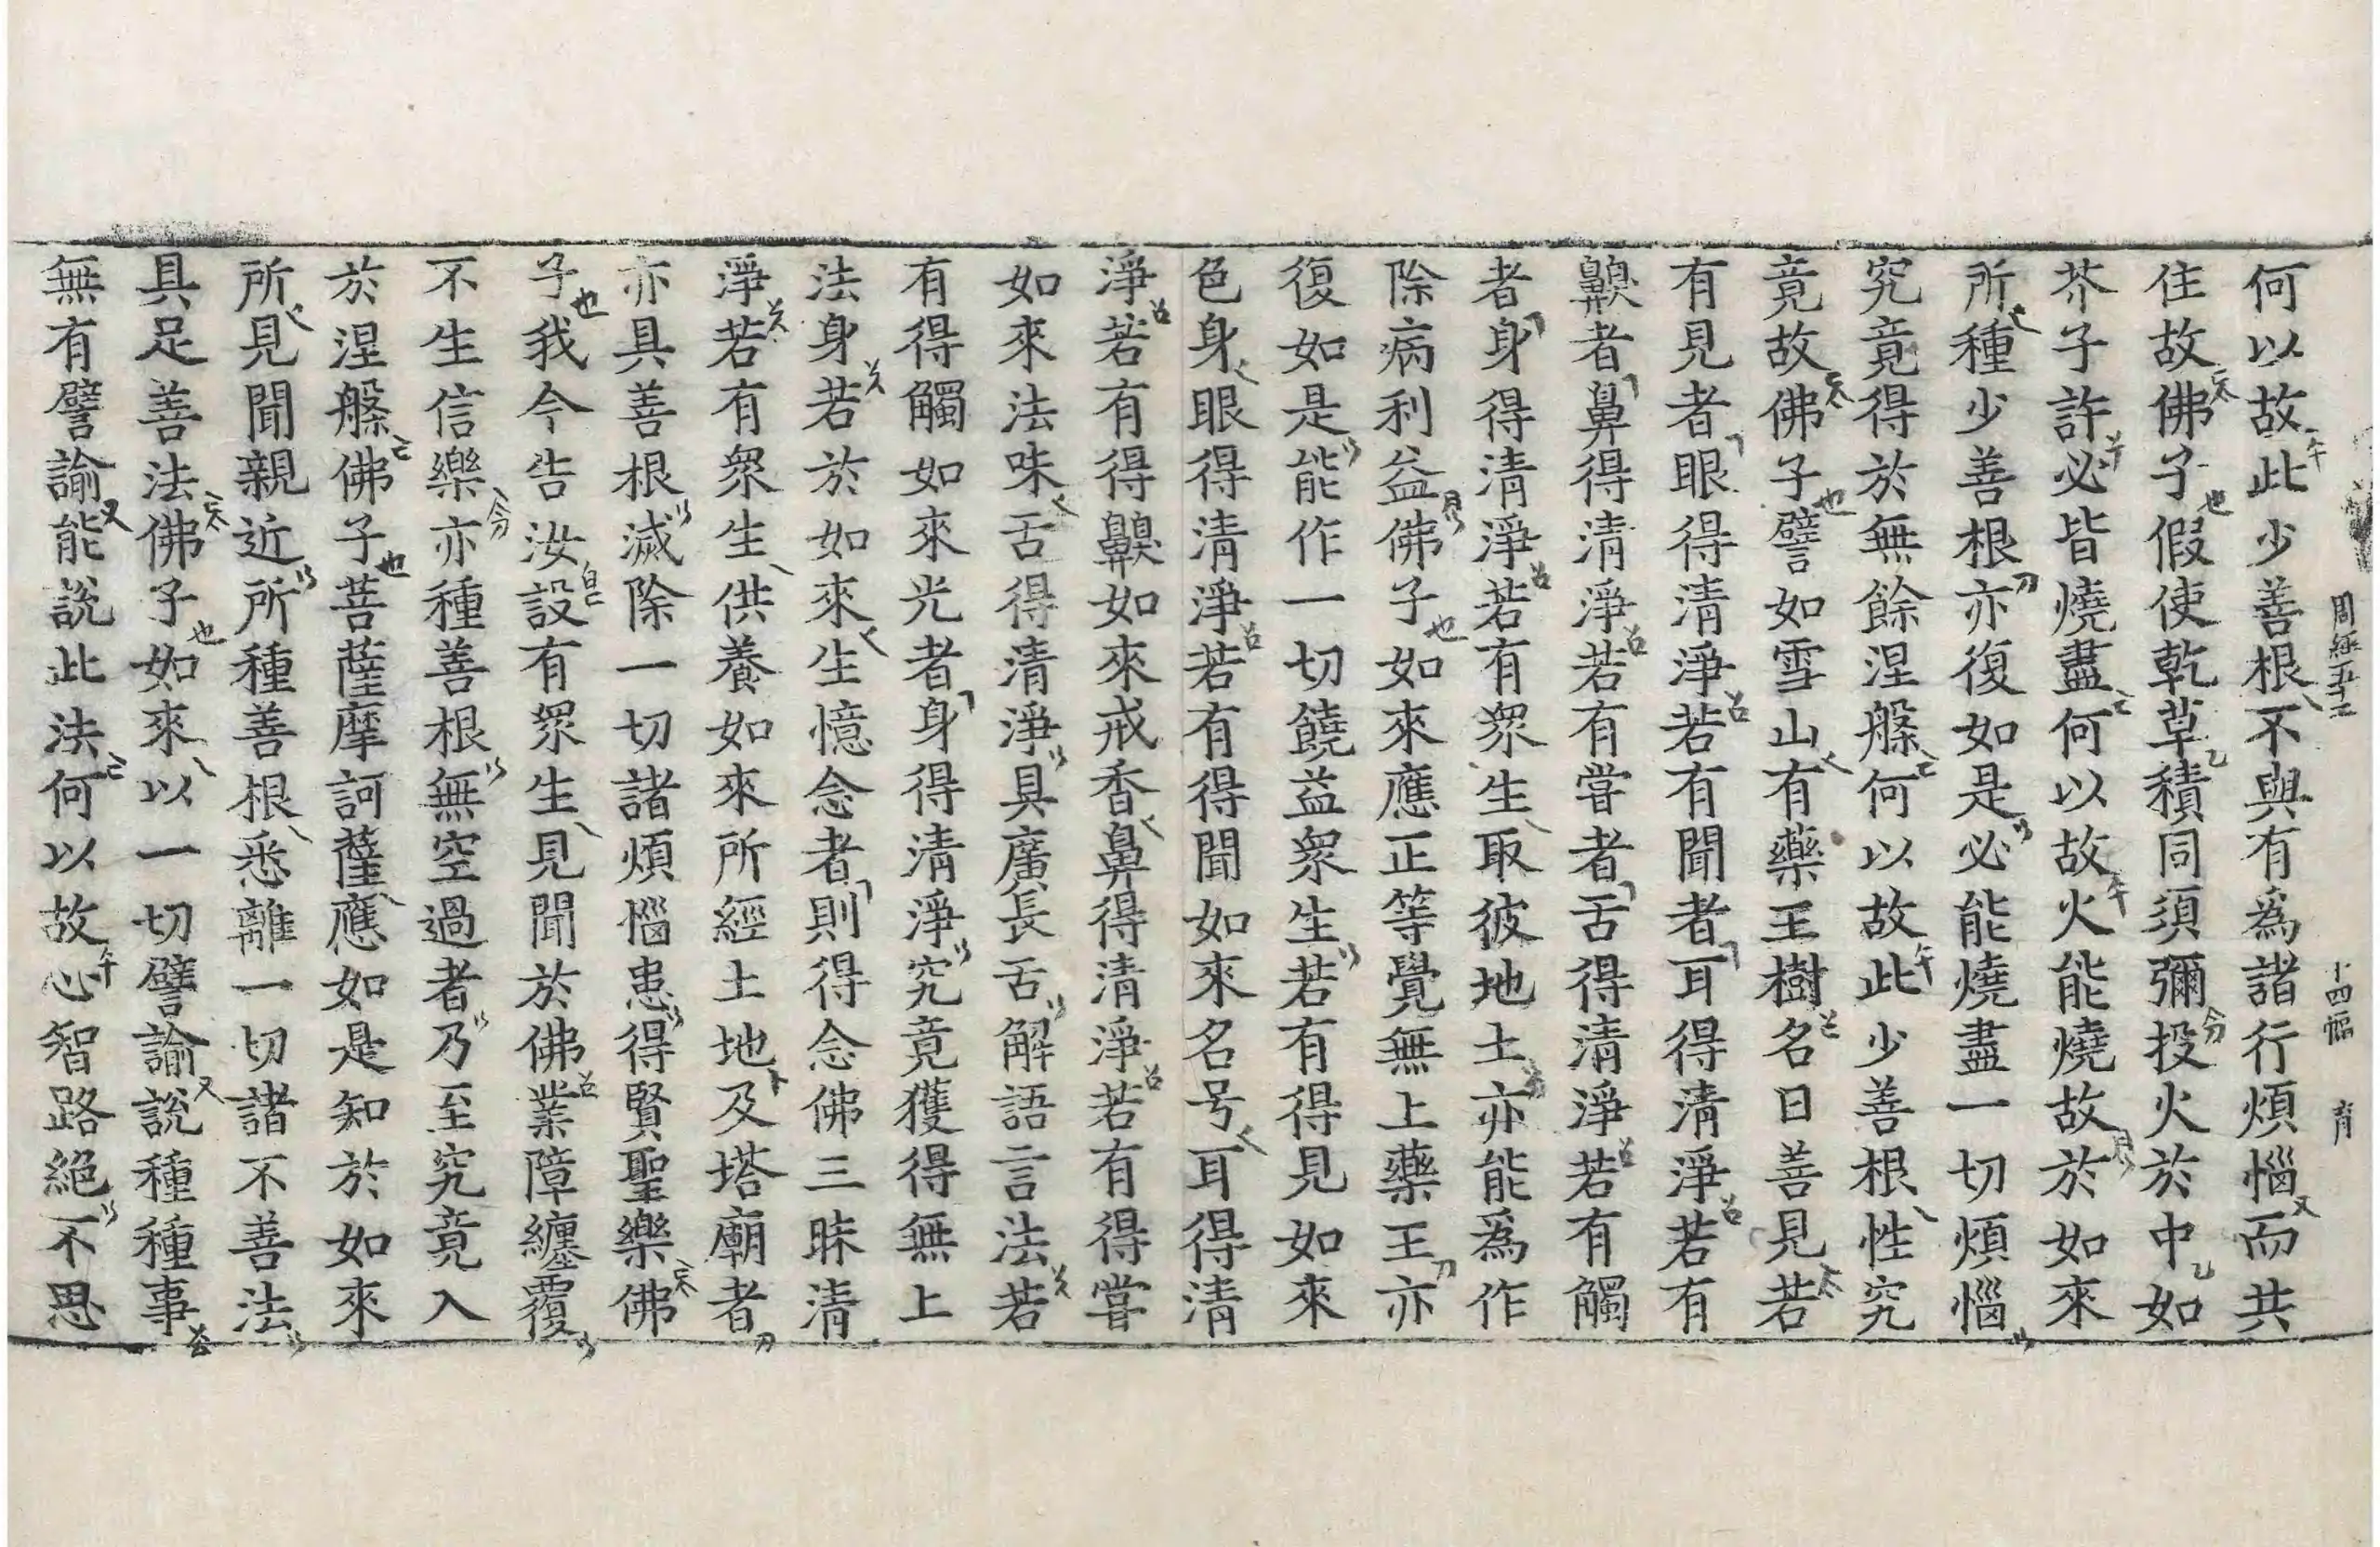 何以故此少善根不與有爲諸行煩惱而共
住故佛子假使乾草積同須彌投火於中如
芥子許必皆燒盡何以故火能燒故於如來
所種少善根亦復如是必能燒盡一切煩惱
究竟得於無餘涅槃何以故此少善根性究
竟故佛子譬如雪山有藥王樹名曰善見若
有見者眼得清淨若有聞者耳得清淨若有
齅者鼻得清淨若有嘗者舌得清淨若有觸
者身得清淨若有眾生取彼地土亦能爲作
除病利益佛子如來應正等覺無上藥王亦
復如是能作一切饒益眾生若有得見如來
色身眼得清淨若有得聞如來名号耳得清
淨若有得齅如來戒香鼻得清淨若有得嘗
如來法味舌得清淨具廣長舌解語言法若
有得觸如來光者身得清淨究竟獲得無上
法身若於如來生憶念者則得念佛三昧清
淨若有眾生供養如來所經土地及塔廟者
亦具善根滅除一切諸煩惱患得賢聖樂佛
子我今告汝設有眾生見聞於佛業障纏覆
不生信樂亦種善根無空過者乃至究竟入
於涅槃佛子菩薩摩訶薩應如是知於如來
所見聞親近所種善根悉離一切諸不善法
具足善法佛子如來以一切譬諭說種種事
無有譬諭能說此法何以故心智路絕不思
周經五十二 十四幅 育